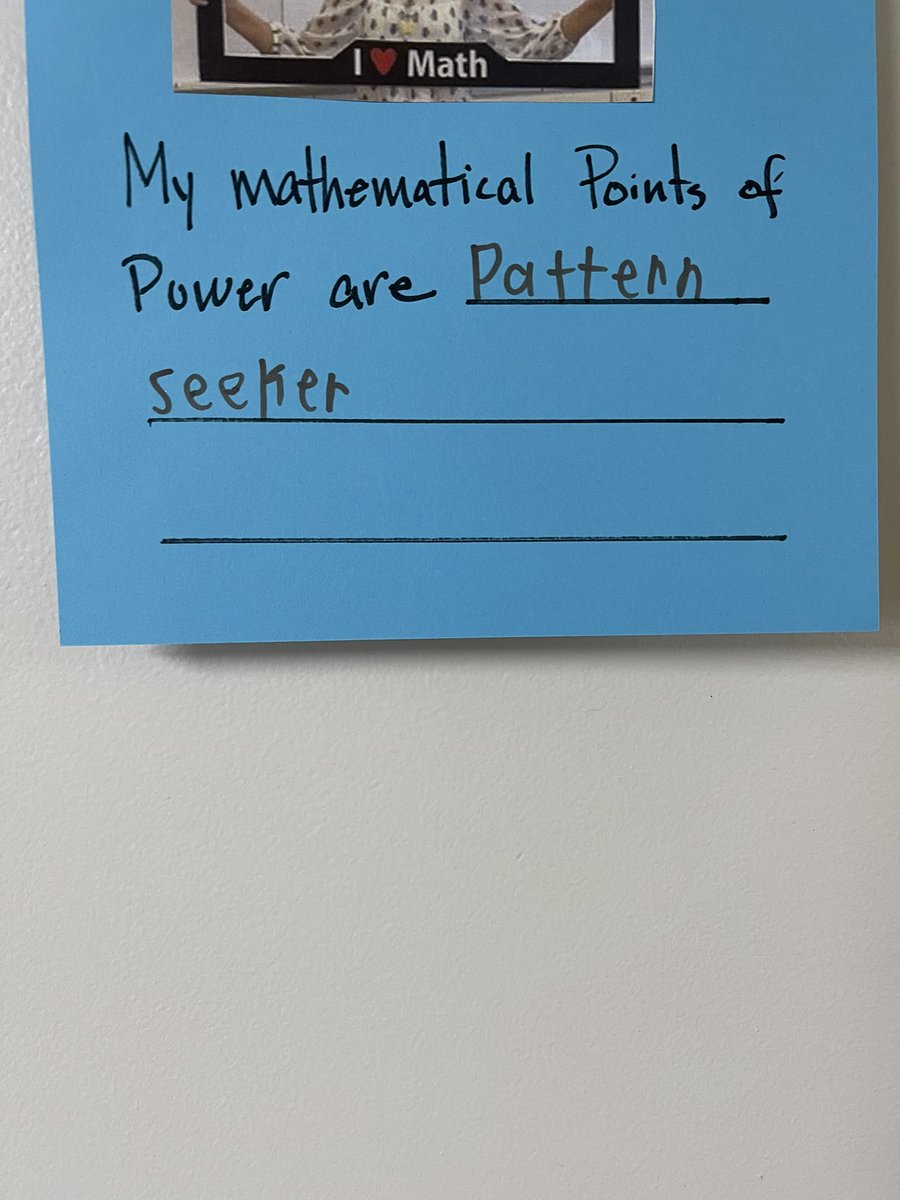 I ❤ Math
My mathematical Points of
Power are Pattern
seeker